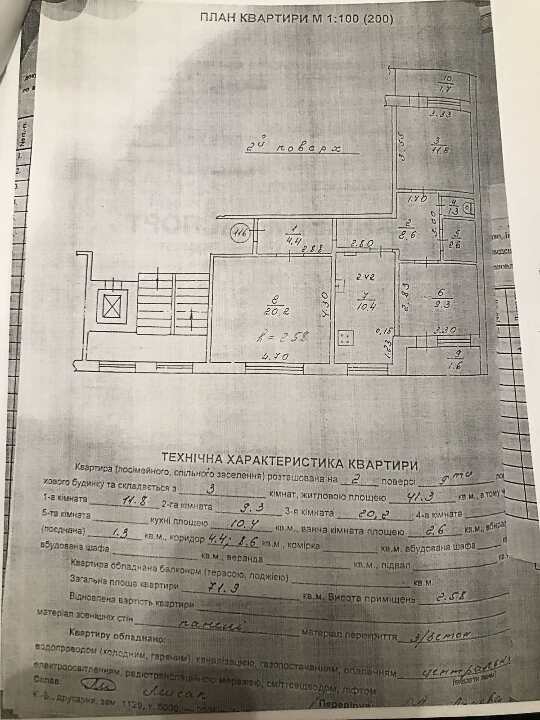 ПЛАН КВАРТИРИ М 1:100 (200)
10
1.7
3.33
3
11.8
3.55
2й поверх
1.70
4
1.3
116
1
4.4
2.88
2
8.6
2.80
5
2.6
8
20.2
4.30
2.42
7
10.4
2.83
6
9.3
h = 2.58
0.15
3.30
4.70
1.23
9
1.6
ТЕХНІЧНА ХАРАКТЕРИСТИКА КВАРТИРИ
Квартира (посімейного, спільного заселення) розташована на 2 поверсі
хового будинку та складається з 3 кімнат, житловою площею 41.3 кв.м, в тому ч
1-а кімната 11.8 2-га кімната 9.3 3-я кімната 20,2 4-а кімната
5-та кімната кухні площею 10.4 кв.м., ванна кімната площею 2.6 кв.м.,
(поєднана) 1.3 кв.м., коридор 4.4; 8.6 кв.м., комірка кв.м., вбудована шафа
вбудована шафа кв.м., веранда кв.м., підвал кв.м.
Квартира обладнана балконом (терасою, лоджією) кв.м.
Загальна площа квартири 71.9 кв.м. Висота приміщень 2.58
Відновлена вартість квартири
матеріал зовнішніх стін панелі матеріал перекриття з/бетон
Квартиру обладнано:
водопроводом (холодним, гарячим), каналізацією, газопостачанням, опаленням
електроосвітленням, радіотрансляційною мережею, сміттєвідводом, ліфтом
Склав